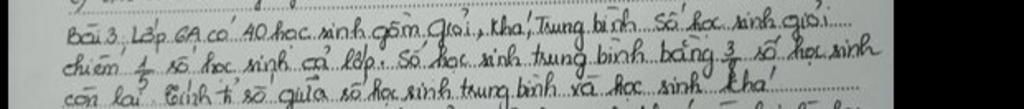 Bài 3, Lớp 6A có 40 học sinh gồm giỏi, khá, Trung bình. Số học sinh giỏi
chiếm 1/5 số học sinh cả lớp. Số học sinh trung bình bằng 3/8 số học sinh
còn lại. Tính tỉ số giữa số học sinh trung bình và học sinh khá